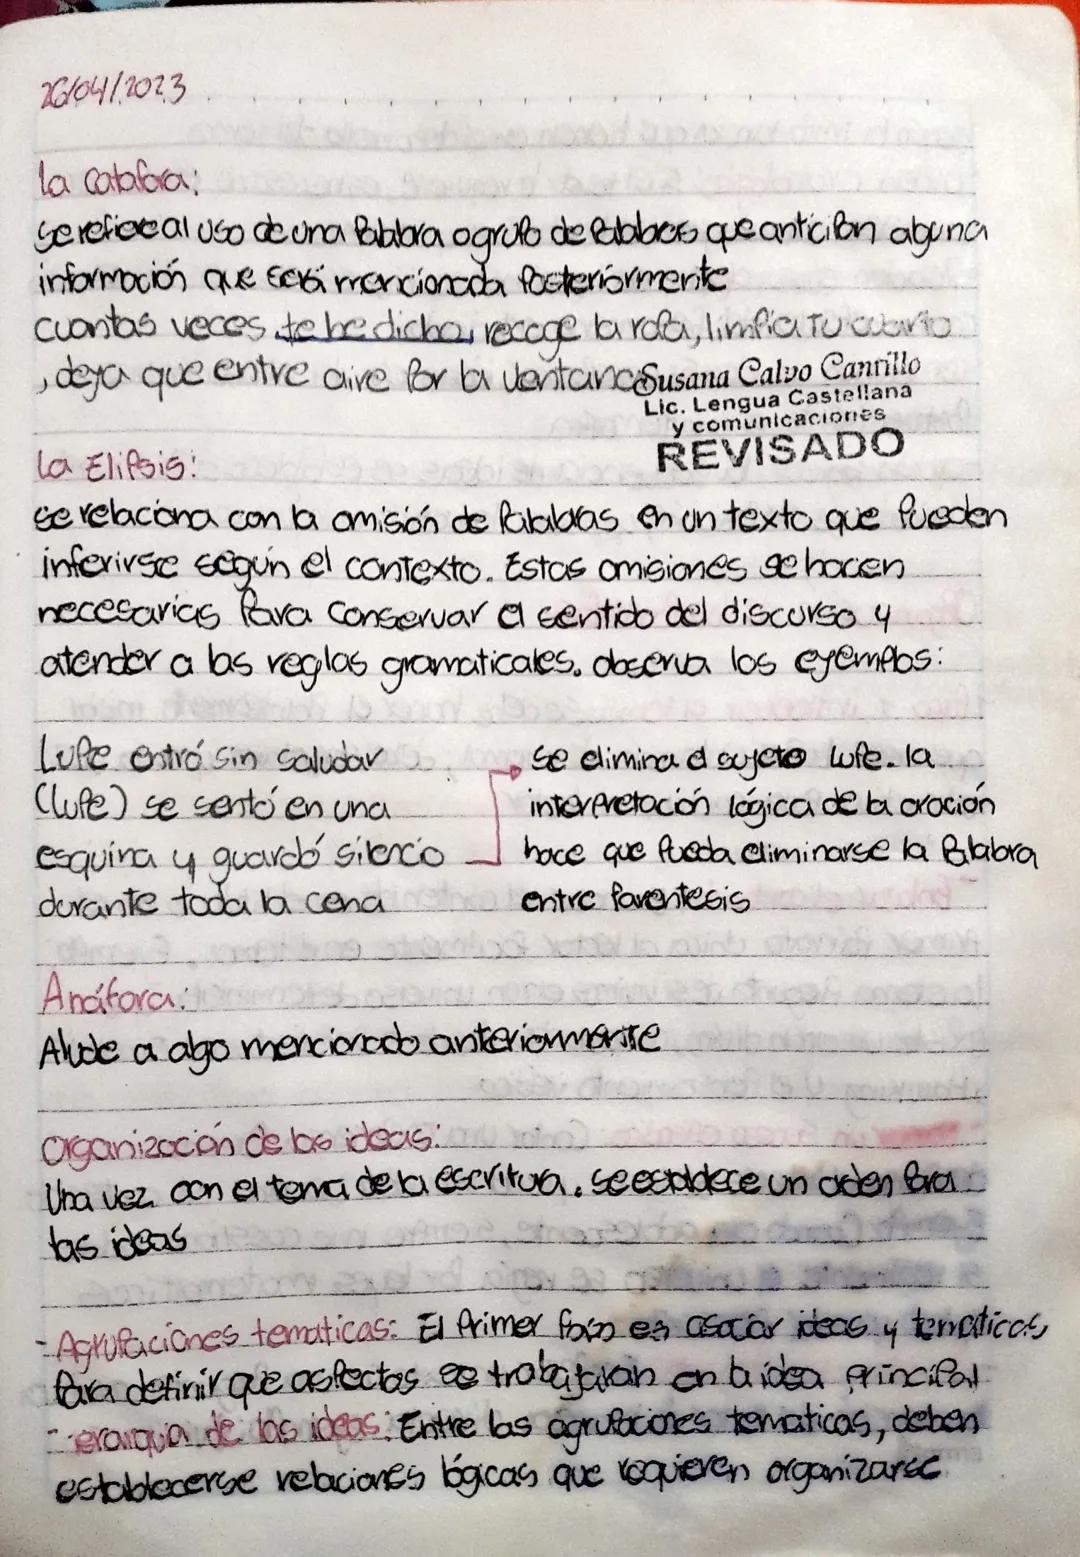 26/04/2023
la catafora:
se refiere al uso de una Palabra o grupo de Palabras que anticipan alguna
información que será mencionada Posteriormente
cuantas veces te he dicho, recoge la ropa, limpia Tu cuarto
, deja que entre aire Por la ventana
Susana Calvo Cantillo
Lic. Lengua Castellana
y comunicaciones
REVISADO
La Elipsis:
se relaciona con la omisión de Palabras en un texto que Pueden
inferirse según el contexto. Estas omisiones se hacen
necesarias Para Conservar el sentido del discurso y
atender a las reglas gramaticales. observa los ejemplos:
Lupe entró sin saludar
(lupe) se sentó en una
esquina y guardó silencio
durante toda la cena
se elimina el sujeto lupe. la
interpretación lógica de la oración
hace que Pueda eliminarse la Palabra
entre parentesis
Anáfora:
Alude a algo mencionado anteriormente
Organización de las ideas:
Una vez con el tema de la escritura. se establece un orden Para
las ideas
- Agrupaciones tematicas: El Primer Paso es asociar ideas y tematicas
Para definir que aspectos se trabajaran en la idea principal
- erarquia de las ideas: Entre las agrupaciones tematicas, deben
establecerse relaciones lógicas que requieren organizarse